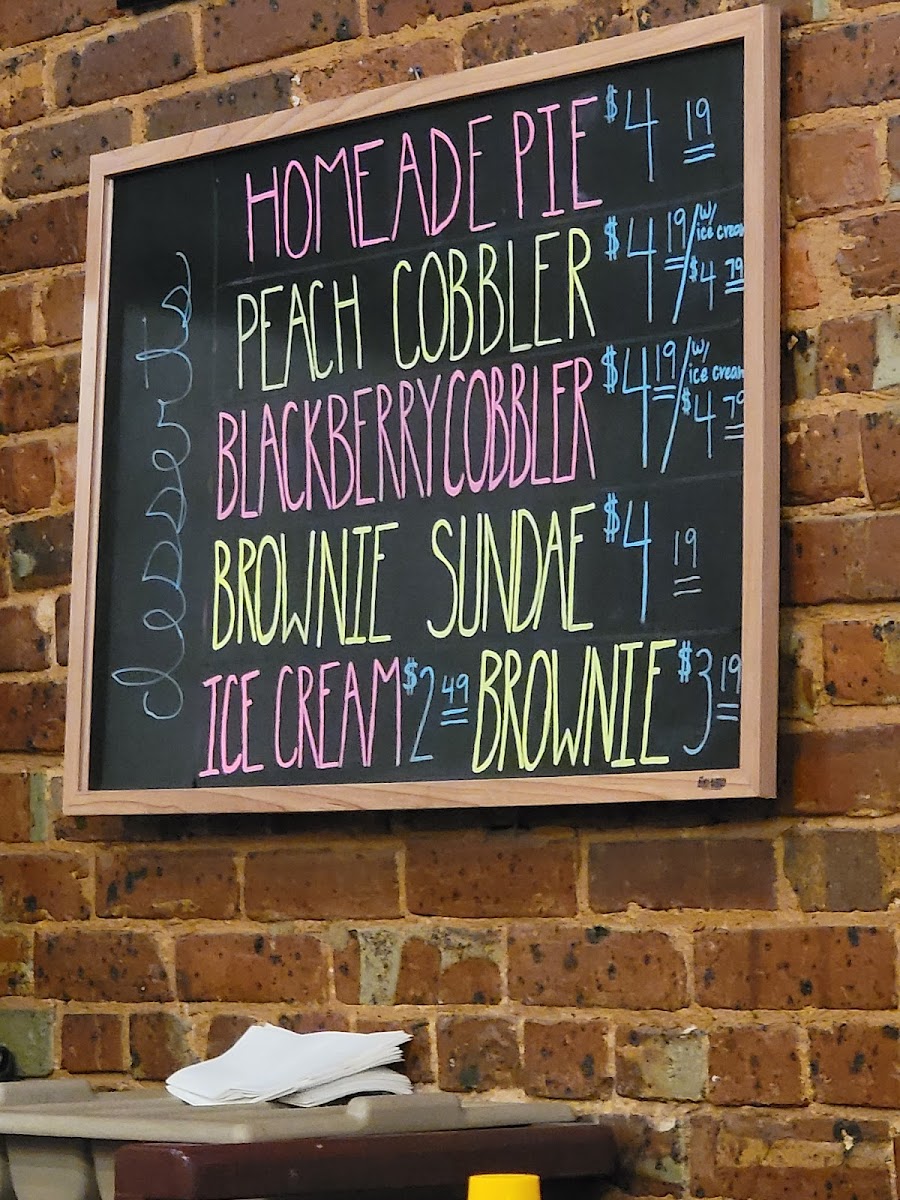 desserts
HOMEADE PIE $4 19
PEACH COBBLER $4 19 / w/ ice cream $4 79
BLACKBERRY COBBLER $4 19 / w/ ice cream $4 79
BROWNIE SUNDAE $4 19
ICE CREAM $2 49 BROWNIE $3 19